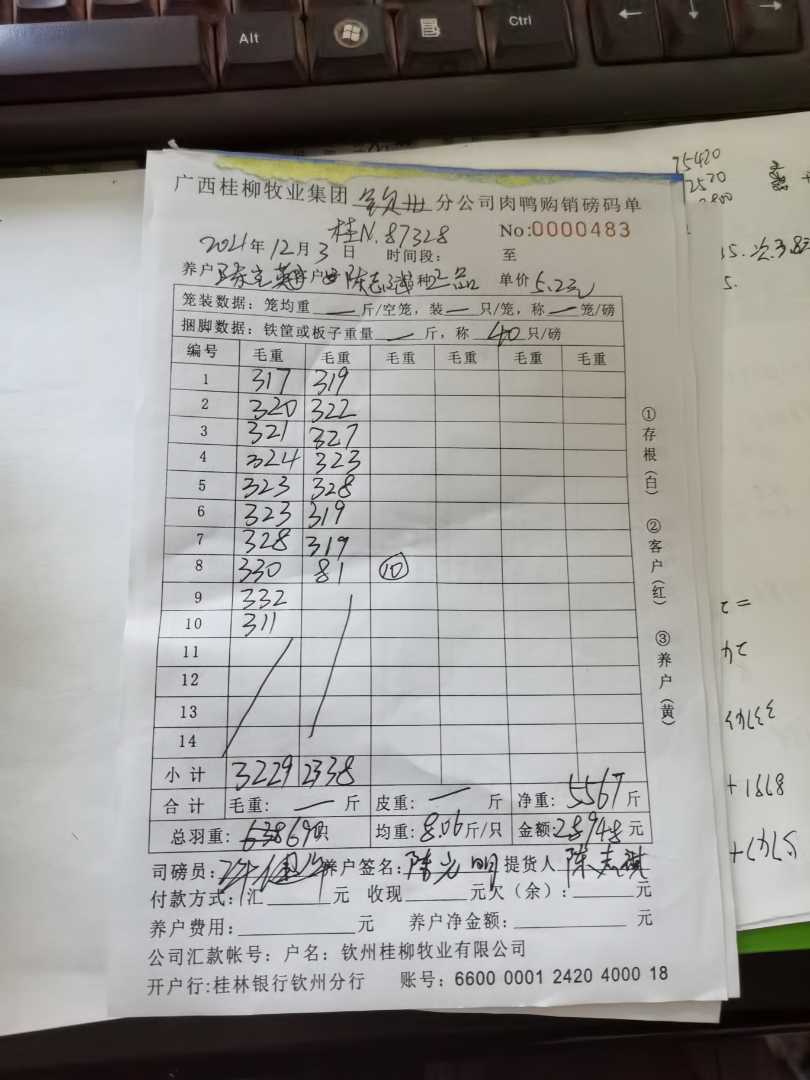 Alt
Ctrl
75420
2570
广西桂柳牧业集团 钦州 分公司肉鸭购销磅码单
桂N.87328
No:0000483
2021年12月3日 时间段： 至
养户 客户 陈志 品种 单价5.2元
笼装数据：笼均重 — 斤/空笼，装 — 只/笼，称 — 笼/磅
捆脚数据：铁筐或板子重量 — 斤，称 40 只/磅
编号 毛重 毛重 毛重 毛重 毛重 毛重
1 317 319
2 320 322
3 321 327
4 324 323
5 323 328
6 323 319
7 328 319
8 330 81 ⑩
9 332
10 311
11
12
13
14
小计 3229 2338
合计 毛重：— 斤 皮重：— 斤 净重：5567斤
总羽重： 690只 均重：8.06斤/只 金额：28948元
司磅员： 养户签名：陈光明 提货人 陈志祺
付款方式：汇 元 收现 元欠（余）： 元
养户费用： 元 养户净金额： 元
公司汇款帐号：户名：钦州桂柳牧业有限公司
开户行:桂林银行钦州分行 账号：6600 0001 2420 4000 18
①存根（白） ②客户（红） ③养户（黄）